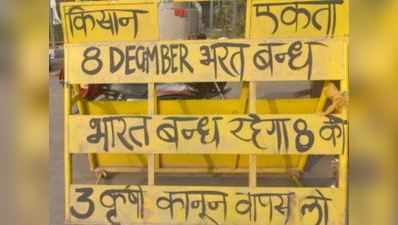 किसान एकता
8 DECEMBER भरत बन्ध
भारत बन्ध रहेगा 8 को
3 कृषी कानून वापस लो